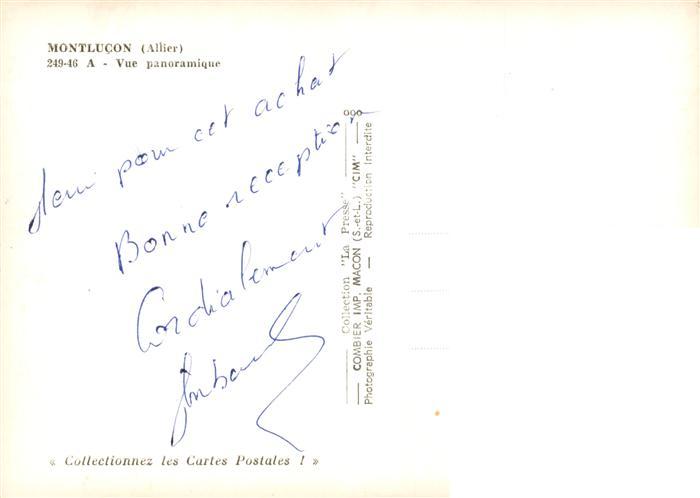 MONTLUÇON (Allier)
249-46 A - Vue panoramique
pour cet achat
Bonne reception
Cordialement
ooo
Collection "La Presse"
COMBIER IMP. MACON (S.-et-L.) "CIM"
Photographie Véritable — Reproduction Interdite
« Collectionnez les Cartes Postales ! »